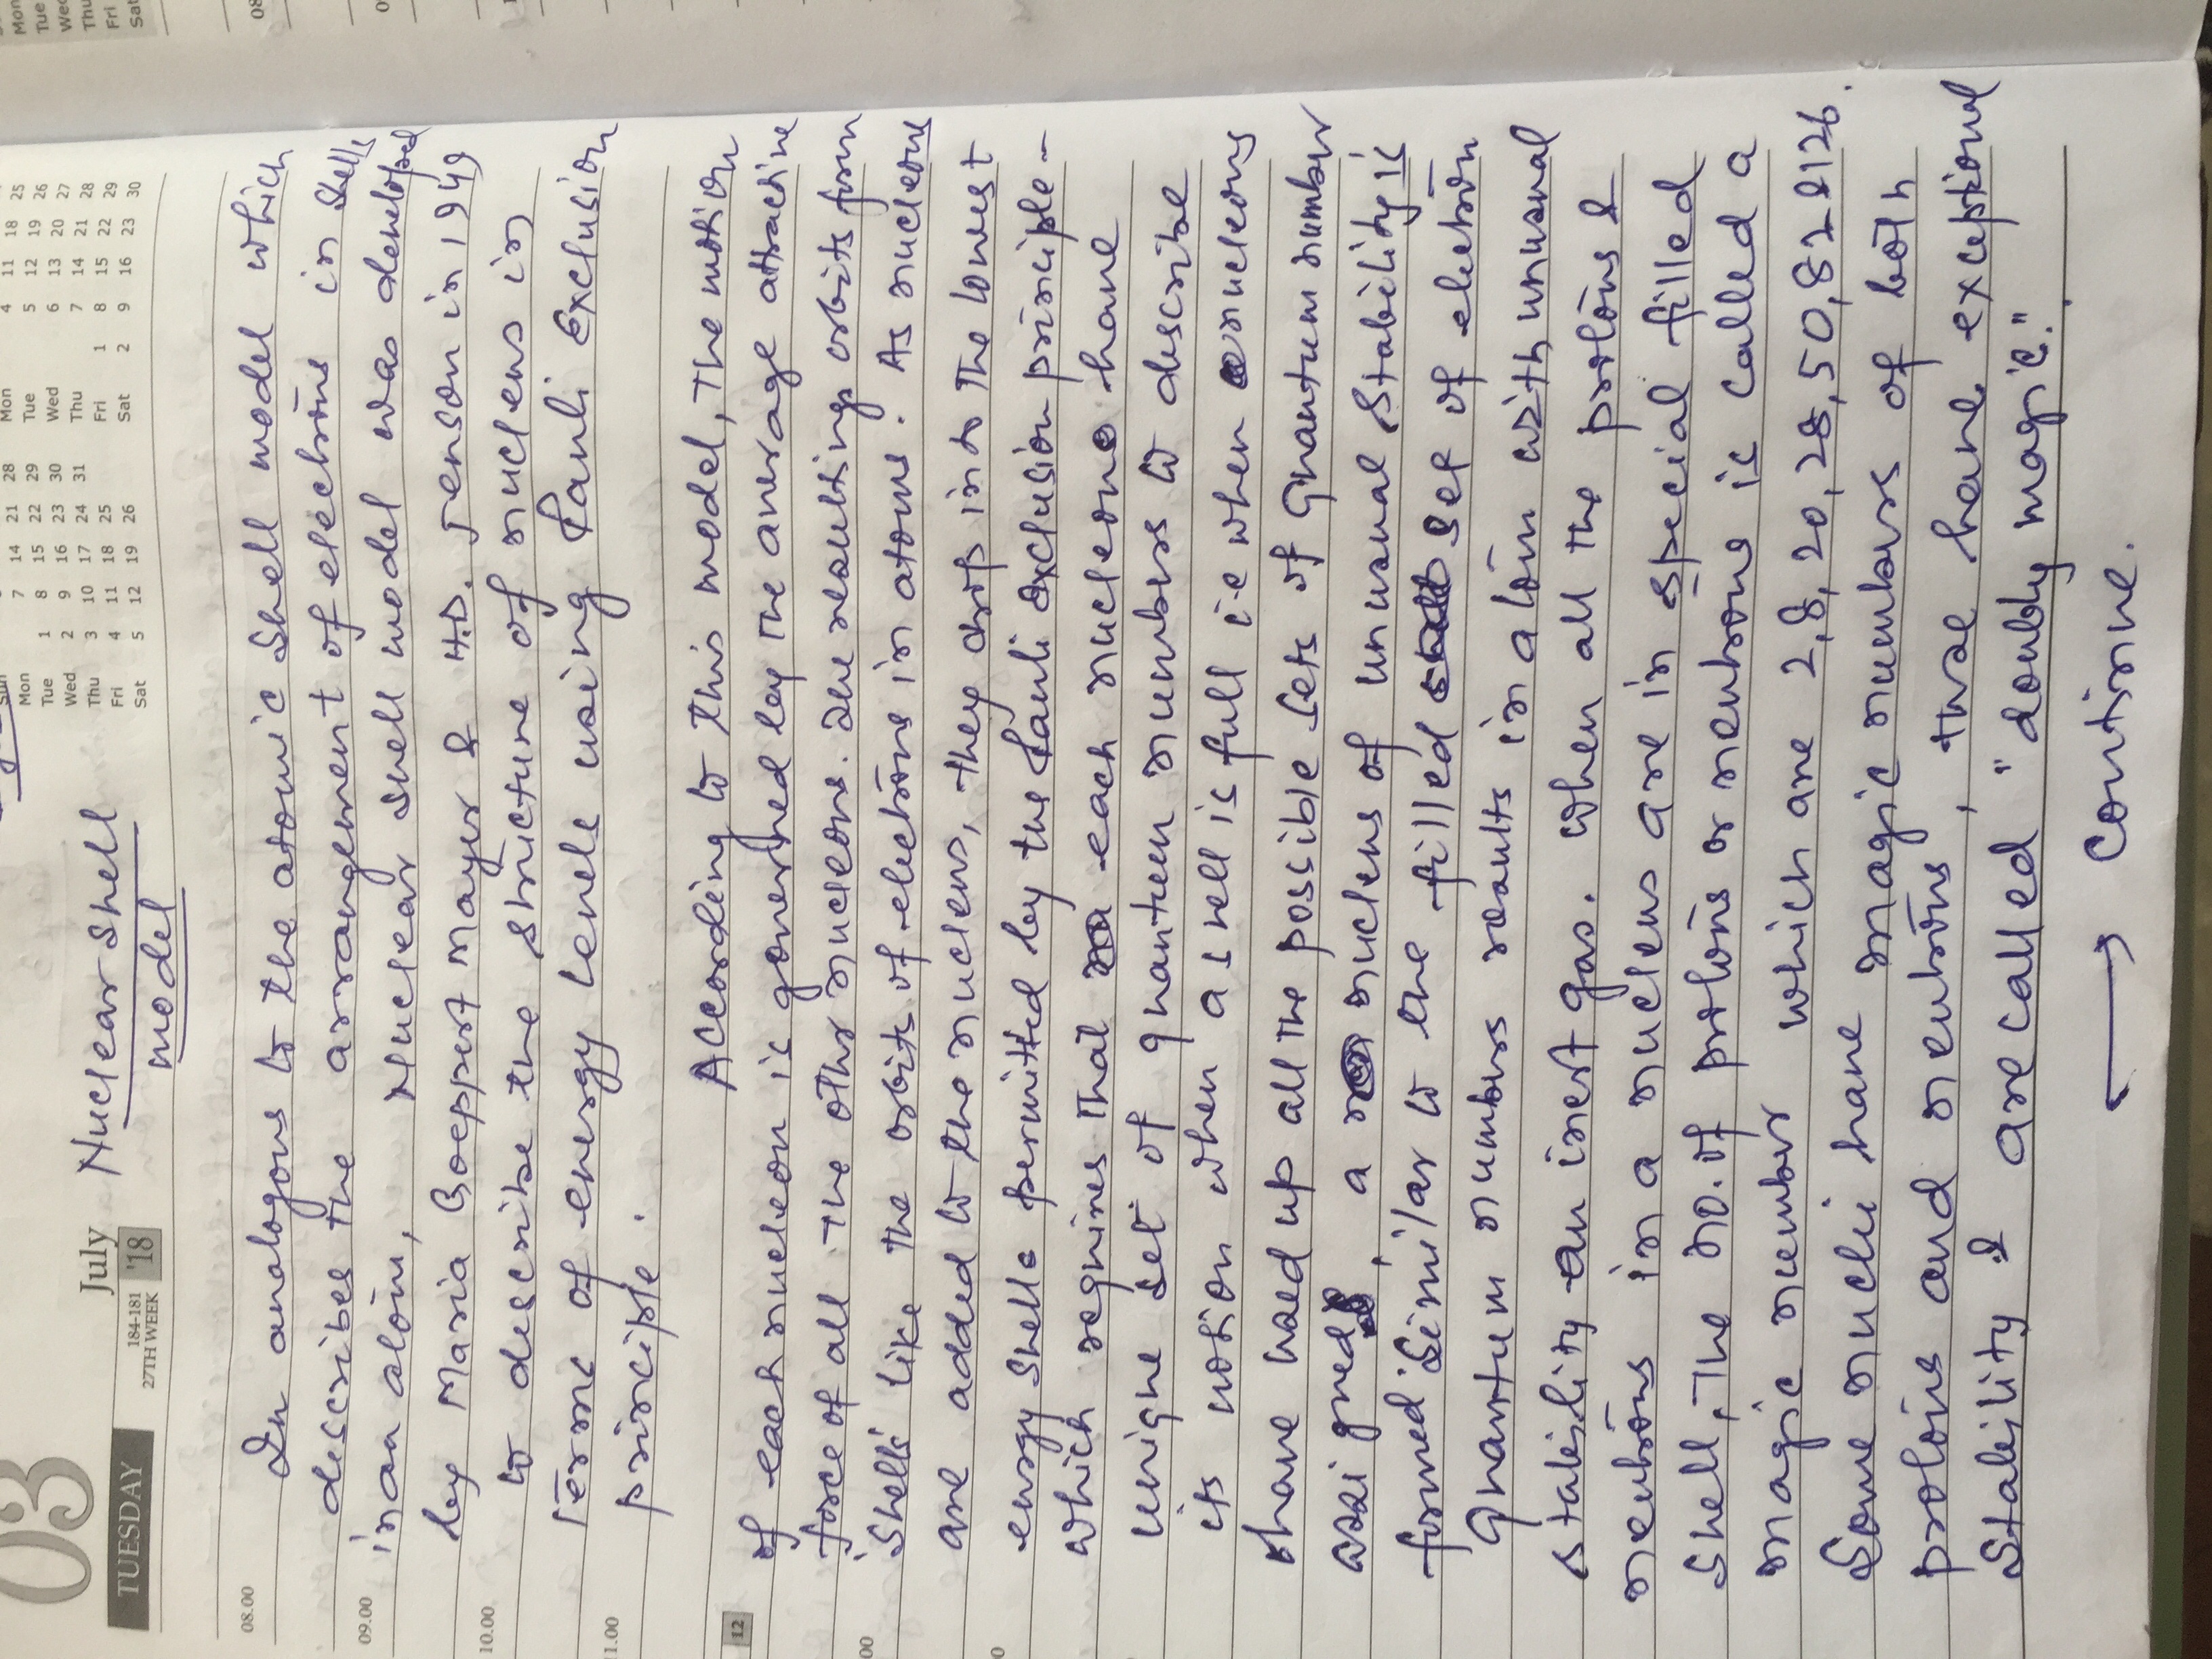 03
TUESDAY
July
184-181
27TH WEEK '18
Mon 7 14 21 28
Tue 1 8 15 22 29
Wed 2 9 16 23 30
Thu 3 10 17 24 31
Fri 4 11 18 25
Sat 5 12 19 26
Mon 4 11 18 25
Tue 5 12 19 26
Wed 6 13 20 27
Thu 7 14 21 28
Fri 1 8 15 22 29
Sat 2 9 16 23 30
Nuclear shell
model
08.00
In analogous to the atomic shell model which
describes the arrangement of electrons in shells
09.00
in an atom, Nuclear shell model was developed
by Maria Goeppert Mayer & H.D. Jenson in 1949
10.00
to describe the structure of nucleus in
terms of energy levels using Pauli Exclusion
11.00
principle.
12
According to this model, the motion
of each nucleon is governed by the average attractive
force of all the other nucleons. The resulting orbits form
shells like the orbits of electrons in atoms. As nucleons
are added to the nucleus, they drop into the lowest
energy shells permitted by the Pauli exclusion principle-
which requires that each nucleons have
unique set of quanteen numbers to describe
its motion when a shell is full ie when nucleons
have used up all the possible sets of Quantum number
assigned, a nucleus of unusual stability is
formed similar to the filled set of electron
Quantum numbers results in atom with unusual
stability an inert gas. When all the protons &
neutrons in a nucleus are in special filled
shell, the no. of protons or neutrons is called a
magic number which are 2, 8, 20, 28, 50, 82 & 126.
Some nuclei have magic numbers of both
protons and neutrons, these have exceptional
stability & are called "doubly magic."
→ Continue.